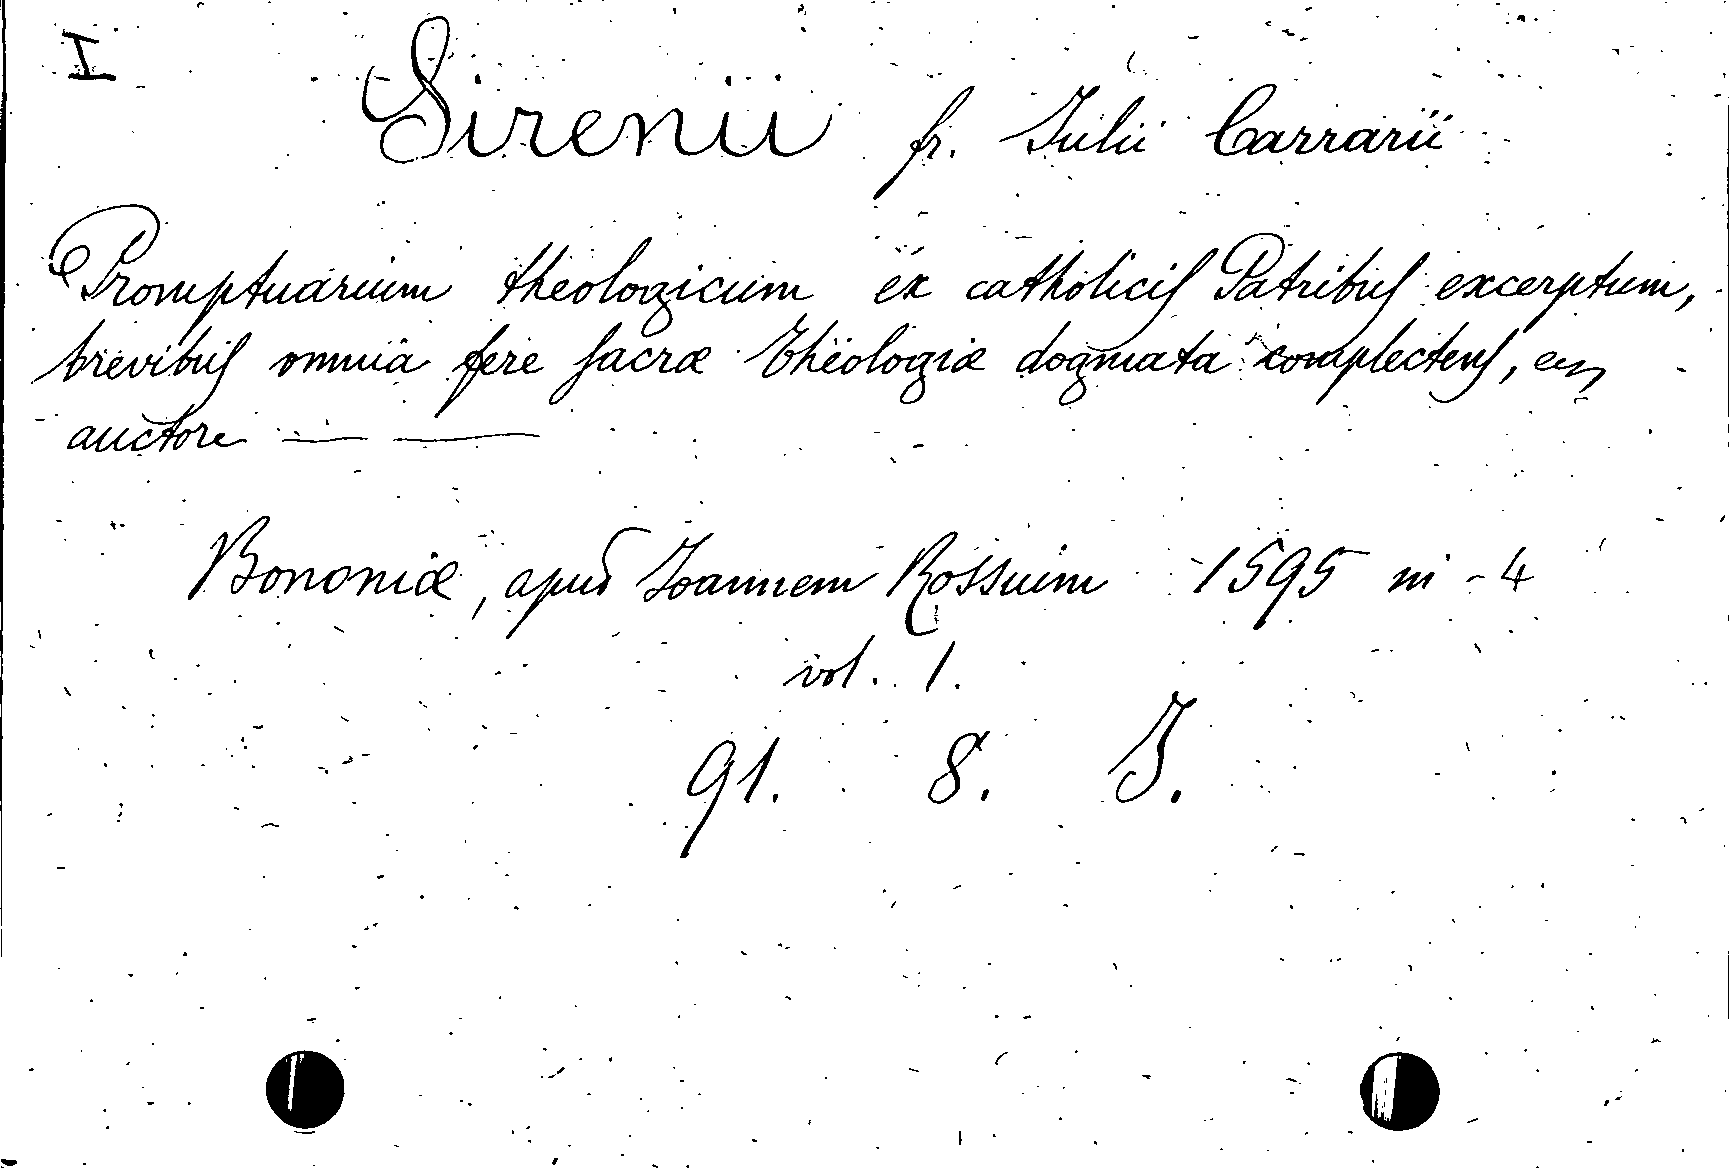 I
Sirenii fr. Julii Carrarii
Promptuarium theologicum ex catholicis Patribus excerptum,
brevibus omnia fere sacræ Theologiæ dogmata complectens,
auctore —— ——
Bononiæ, apud Joannem Rossium 1595 in-4
vol. 1.
91. 8. J.